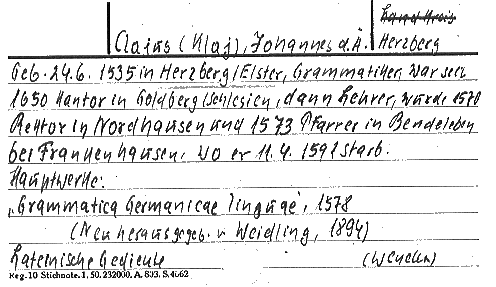 Land Kreis
Claius (Klaj), Johannes d.Ä. Herzberg
Geb. 24.6. 1535 in Herzberg/Elster, Grammatiker, war seit
1650 Kantor in Goldberg/Schlesien, dann Lehrer, wurde 1570
Rektor in Nordhausen und 1573 Pfarrer in Bendeleben
bei Frankenhausen, wo er 11.4. 1592 starb.
Hauptwerke:
„Grammatica Germanicae linguae", 1578
(Neu herausgegeb. v. Weidling, 1894)
Lateinische Gedichte (wenden)
Reg. 10 Stichnote. 1, 50. 232000. A. 803. S. 4662